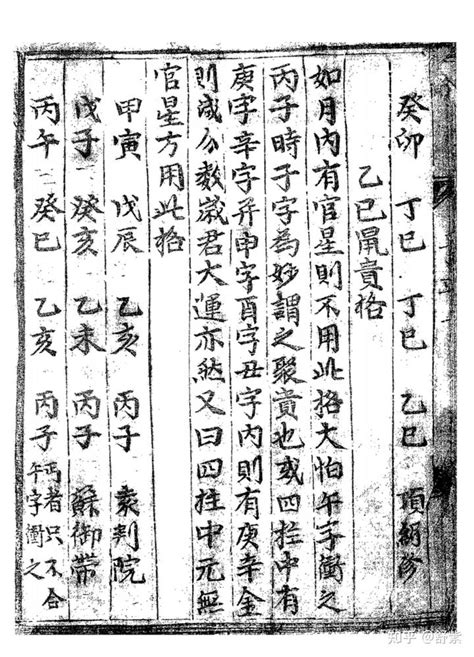 癸卯 丁巳 丁巳 乙巳 項
乙巳鼠貴格
如月内有官星則不用此格大怕午字衝之
丙子時子字為妙謂之聚貴也或四柱中有
庚字辛字并申字酉字丑字内則有庚辛金
則減分数嵗君大運亦然又曰四柱中元無
官星方用此格
甲寅 戊辰 乙亥 丙子 判院
戊子 癸亥 乙未 丙子 蘇御帶
丙午 癸巳 乙亥 丙子 者只不合午字衝之
知乎